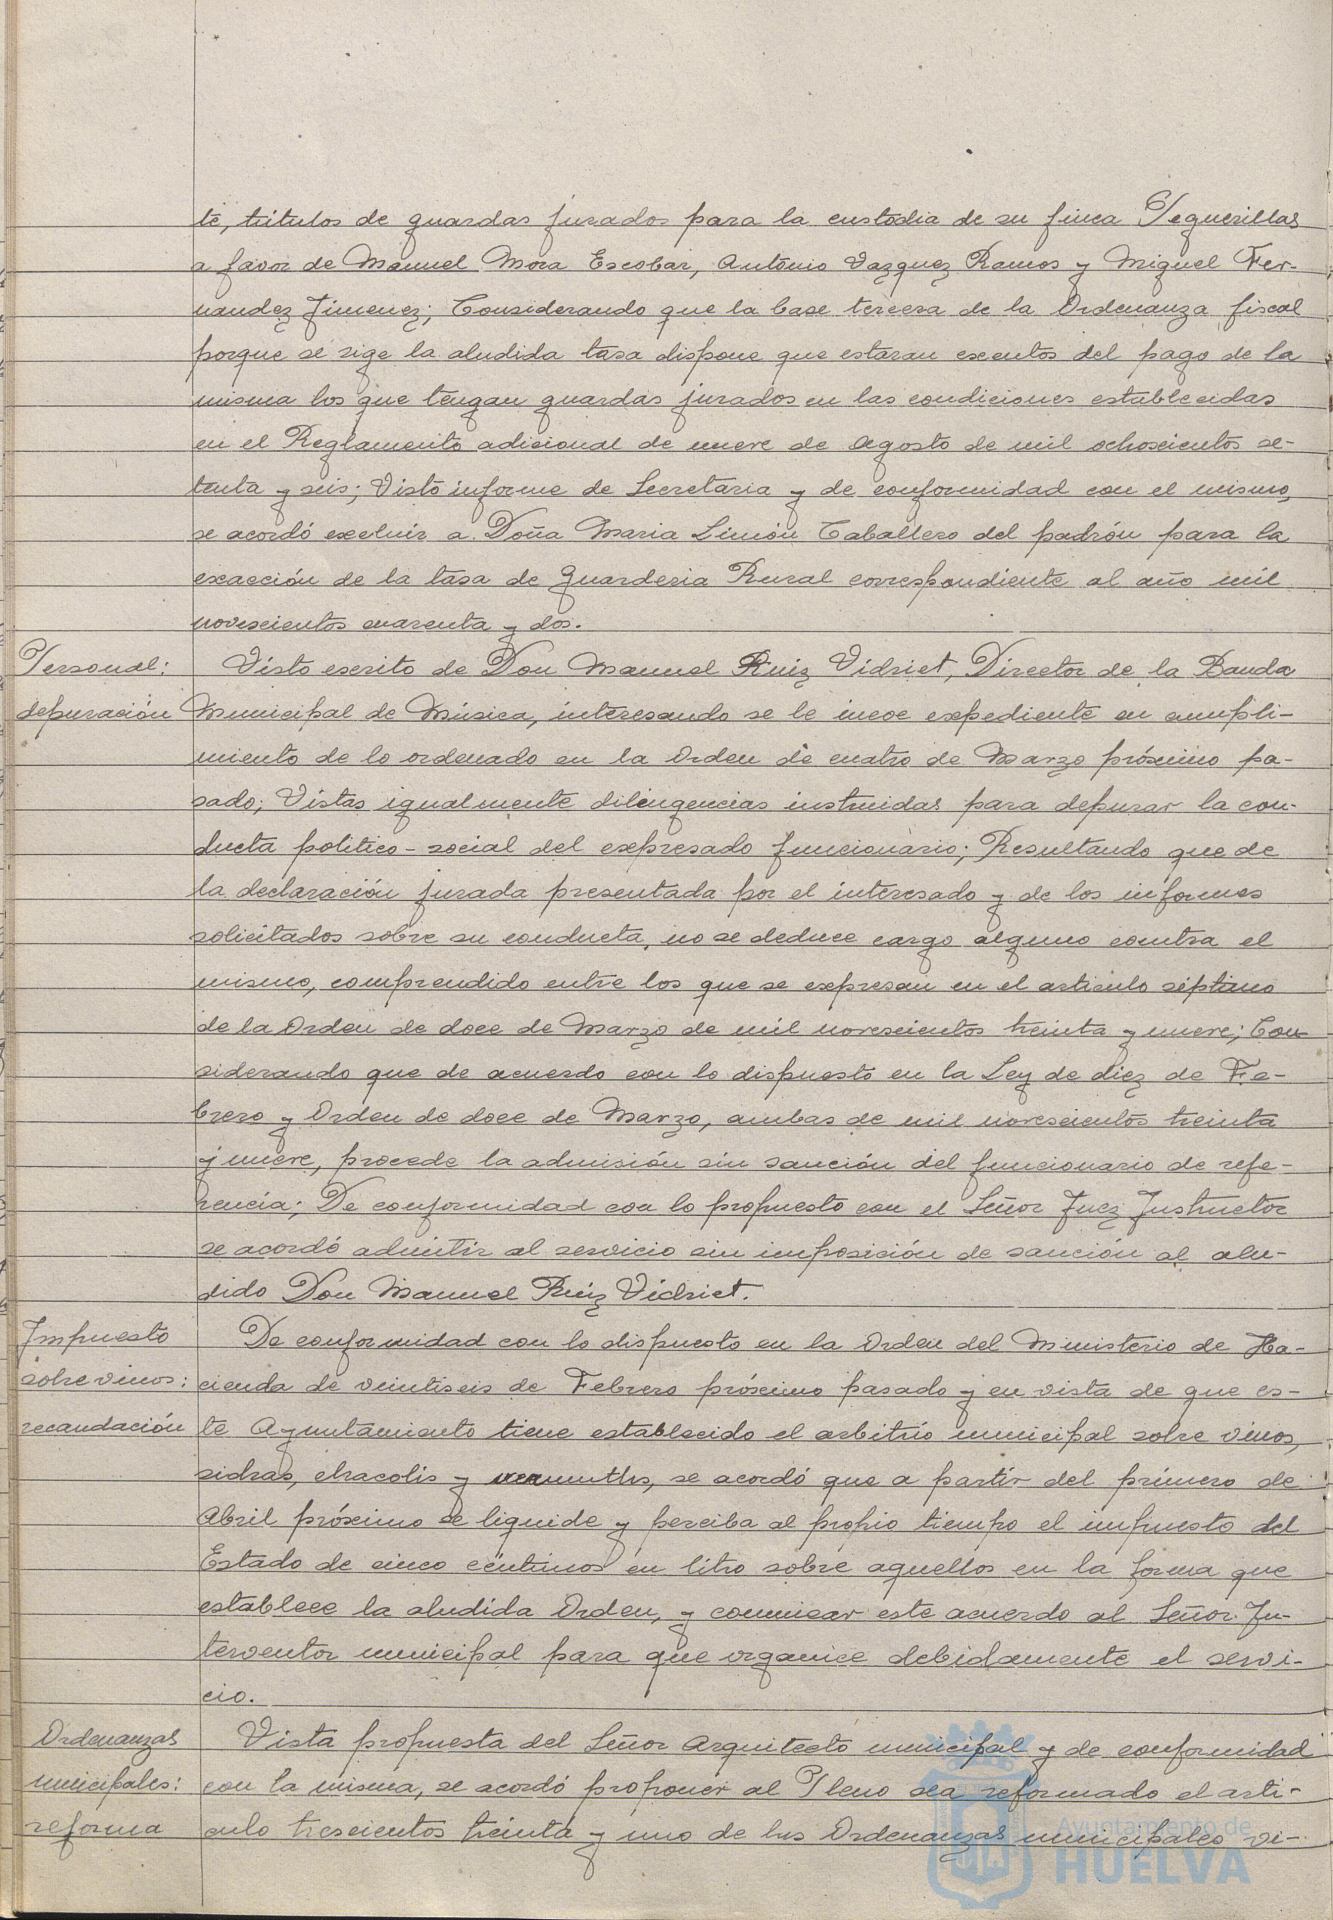 te, titulos de guardas jurados para la custodia de su finca Peguerillas
a favor de Manuel Mora Escobar, Antonio Vazquez Ramos y Miguel Fer-
nandez Jimenez; Considerando que la base tercera de la Ordenanza fiscal
porque se rige la aludida tasa dispone que estaran exentos del pago de la
misma los que tengan guardas jurados en las condiciones establecidas
en el Reglamento adicional de nueve de Agosto de mil ochoscientos se-
tenta y seis; Visto informe de Secretaria y de conformidad con el mismo,
se acordó excluir a Doña Maria Limón Caballero del padrón para la
exacción de la tasa de Guarderia Rural correspondiente al año mil
novescientos cuarenta y dos.
Personal:
depuración
Visto escrito de Don Manuel Ruiz Vidriet, Director de la Banda
Municipal de Música, interesando se le incoe expediente en cumpli-
miento de lo ordenado en la Orden de cuatro de Marzo próximo pa-
sado; Vistas igualmente dilingencias instruidas para depurar la con-
ducta politico-social del expresado funcionario; Resultando que de
la declaración jurada presentada por el interesado y de los informes
solicitados sobre su conducta, no se deduce cargo alguno contra el
mismo, comprendido entre los que se expresan en el articulo séptimo
de la Orden de doce de Marzo de mil novescientos treinta y nueve; Con-
siderando que de acuerdo con lo dispuesto en la Ley de diez de Fe-
brero y Orden de doce de Marzo, ambas de mil novescientos treinta
y nueve, procede la admisión sin sanción del funcionario de refe-
rencia; De conformidad con lo propuesto con el Señor Juez Instructor
se acordó admitir al servicio sin imposición de sanción al alu-
dido Don Manuel Ruiz Vidriet.
Impuesto
sobre vinos:
recaudación
De conformidad con lo dispuesto en la Orden del Ministerio de Ha-
cienda de veintiseis de Febrero próximo pasado y en vista de que es-
te Ayuntamiento tiene establecido el arbitrio municipal sobre vinos,
sidras, chacolis y vermuths, se acordó que a partir del primero de
Abril próximo se liquide y perciba al propio tiempo el impuesto del
Estado de cinco céntimos en litro sobre aquellos en la forma que
establece la aludida Orden, y comunicar este acuerdo al Señor In-
terventor municipal para que organice debidamente el servi-
cio.
Ordenanzas
municipales:
reforma
Vista propuesta del Señor Arquitecto municipal y de conformidad
con la misma, se acordó proponer al Pleno sea reformado el arti-
culo trescientos treinta y uno de las Ordenanzas municipales vi-
Ayuntamiento de
HUELVA